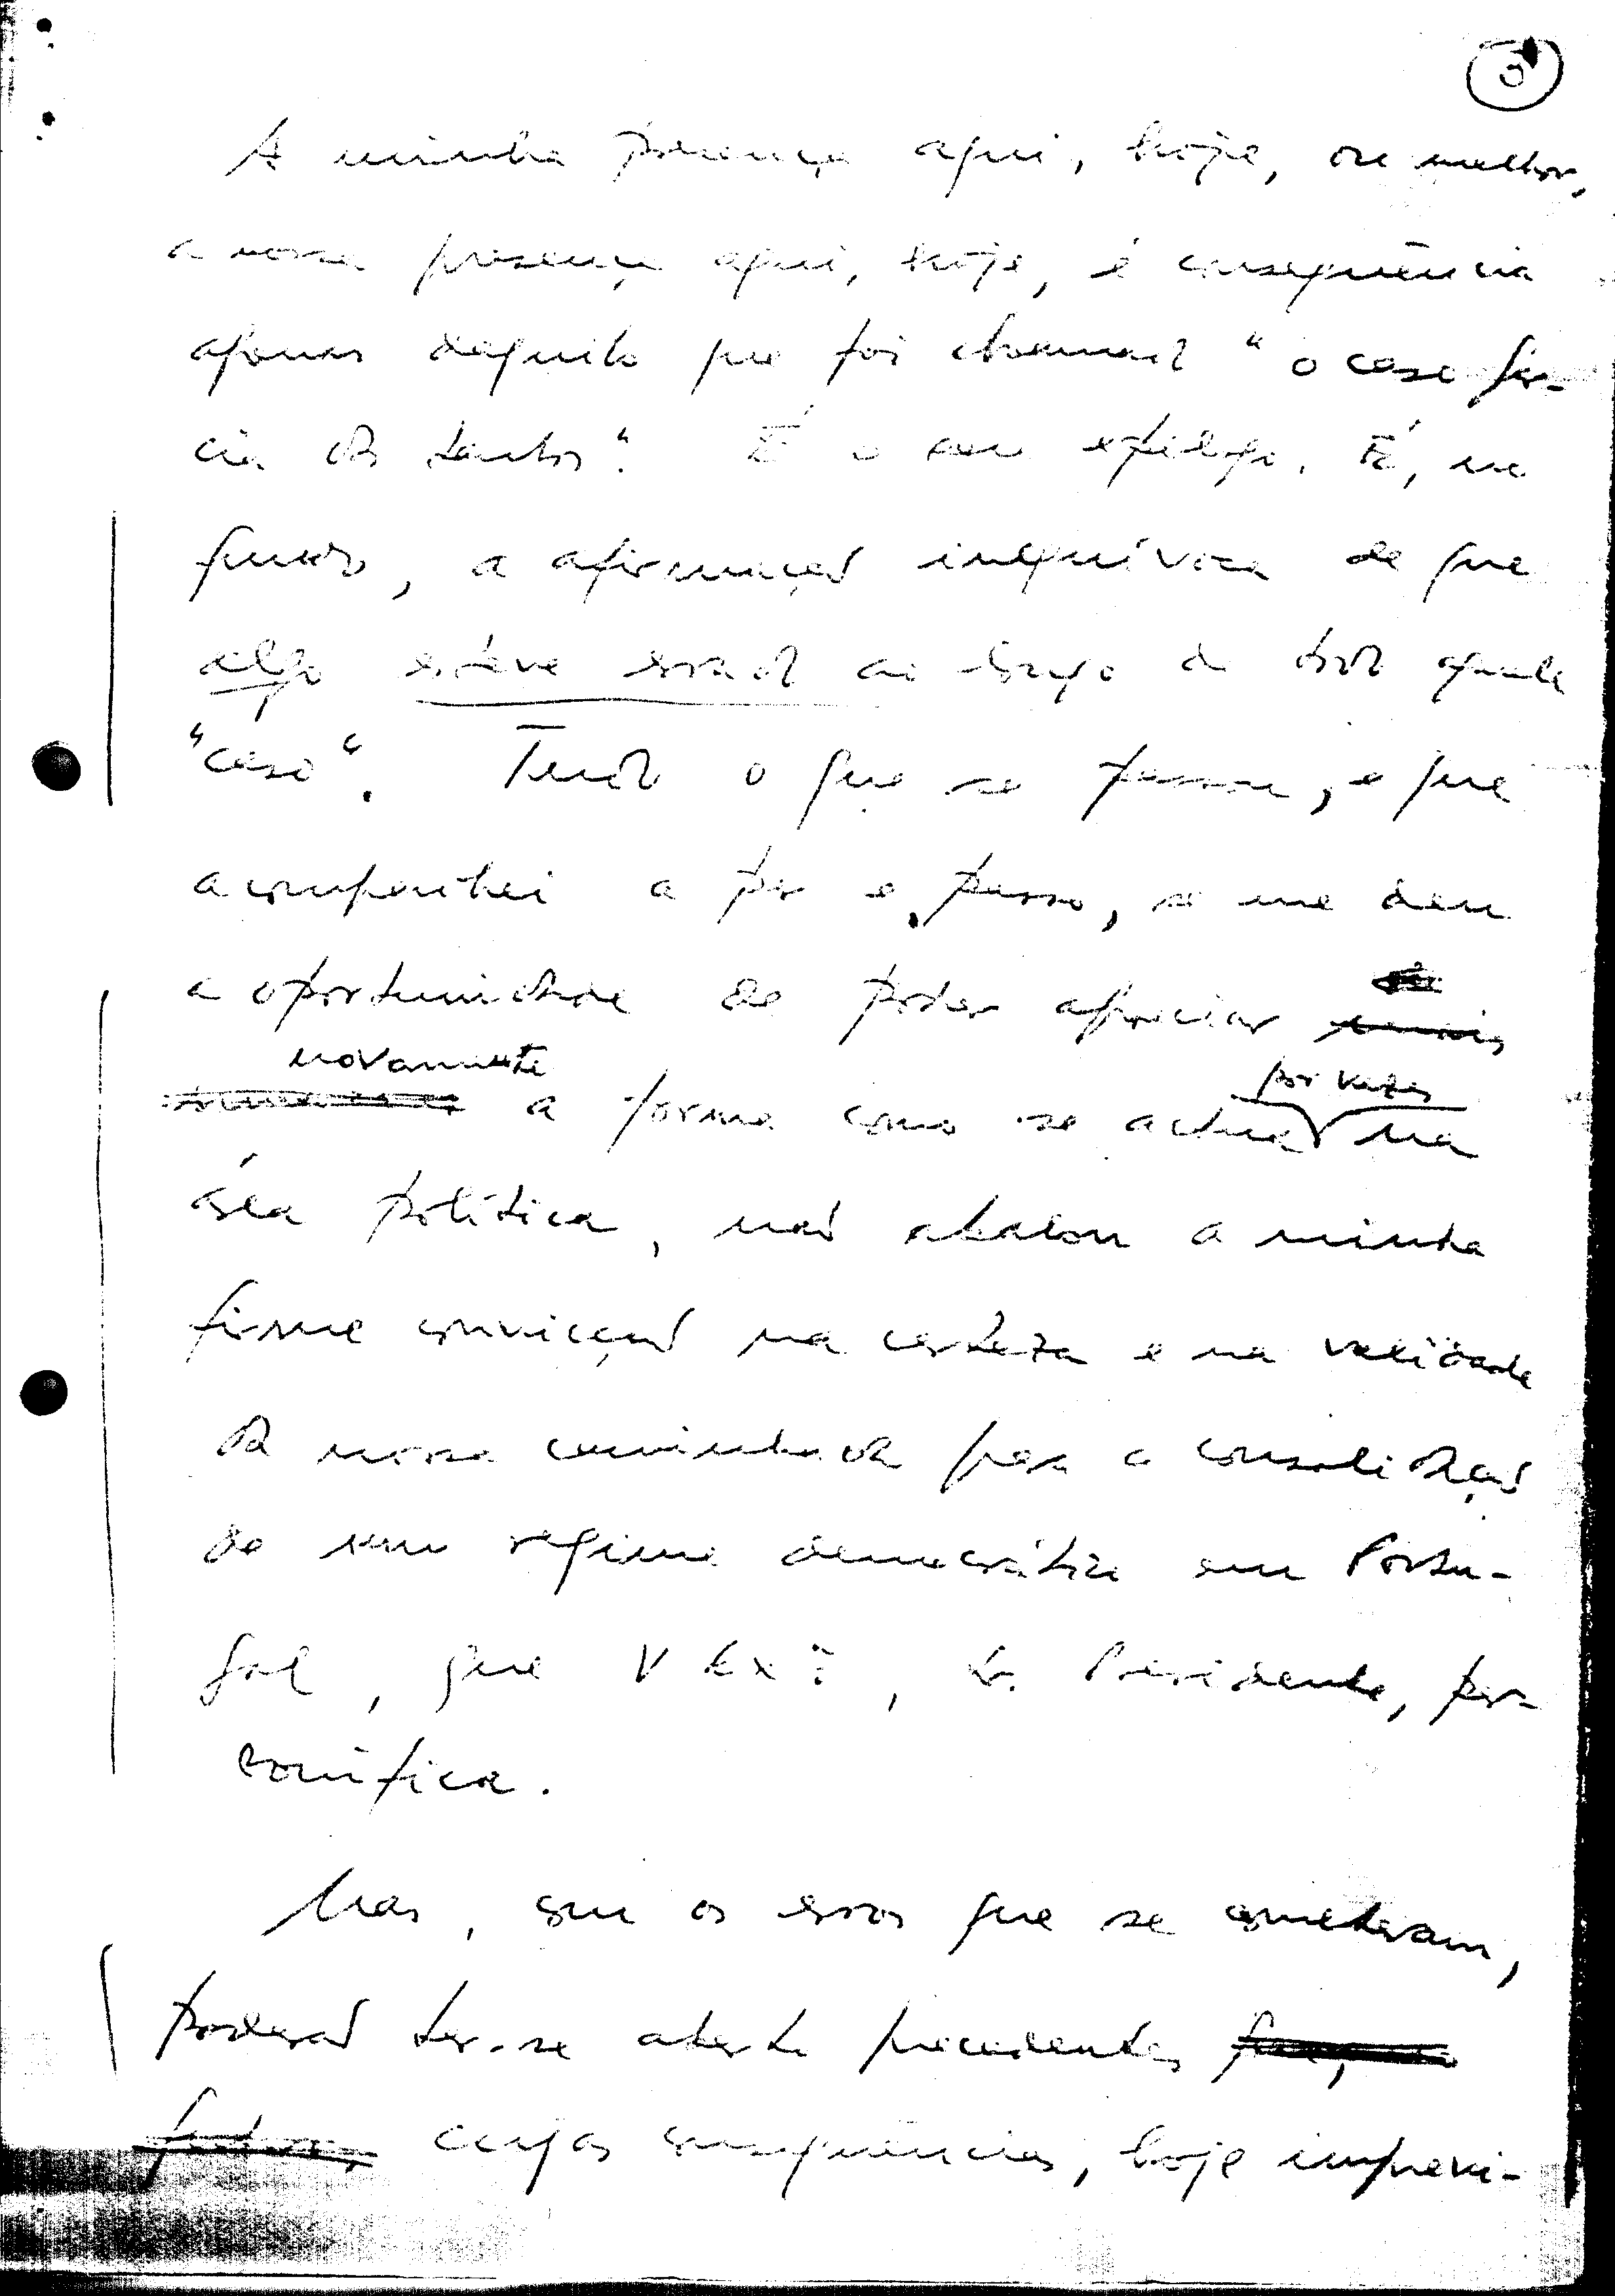 A minha presença aqui, hoje, ou melhor,
a nossa presença aqui, hoje, é consequência
apenas daquilo que foi chamado "o caso Gar-
cia dos Santos". É o seu epílogo. É, no
fundo, a afirmação inequívoca de que
algo esteve errado ao longo de todo aquele
"caso". Tudo o que se passou, e que
acompanhei a par e passo, se me deu
a oportunidade de poder apreciar
novamente a forma como se actua por vezes na
área política, não abalou a minha
firme convicção na certeza e na validade
da nossa caminhada para a consolidação
de um regime democrático em Portu-
gal, que V Exª, Sr. Presidente, per-
sonifica.
Mas, com os erros que se cometeram,
poderão ter-se aberto precedentes
cujas consequências, hoje imprevi-